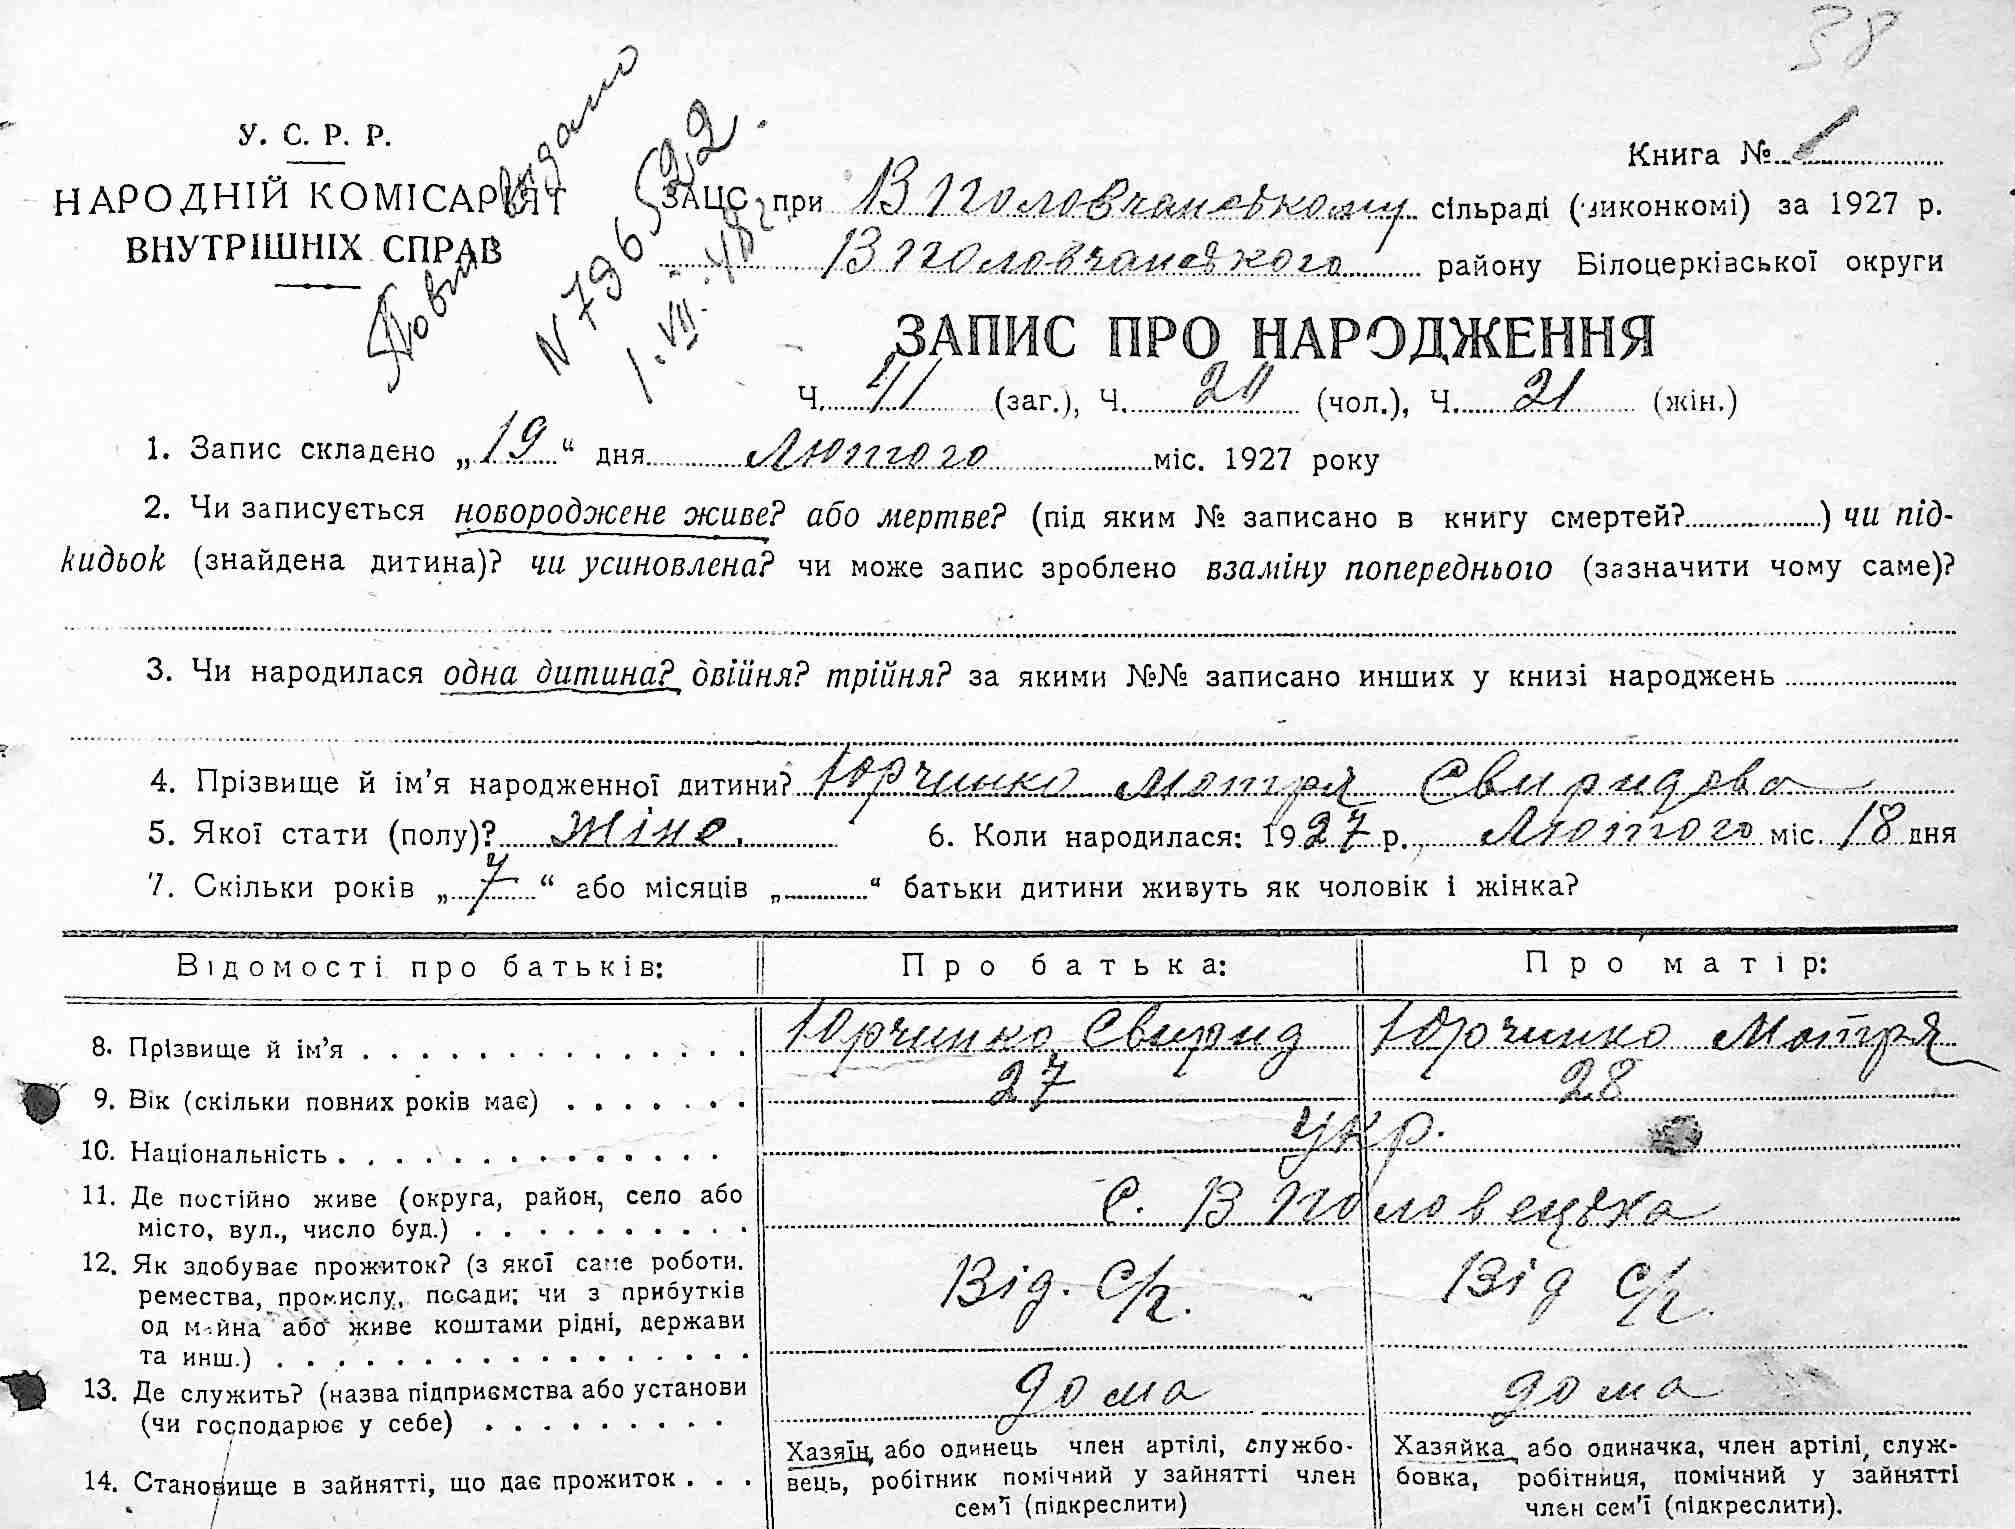 38
У. С. Р. Р.
НАРОДНІЙ КОМІСАРІЯТ
ВНУТРІШНІХ СПРАВ
видано
N 796522.
1. VII. 48 г
Книга № 1
ЗАЦС при В Половчанському сільраді (виконкомі) за 1927 р.
В Половчанського району Білоцерківської округи
ЗАПИС ПРО НАРОДЖЕННЯ
Ч. 41 (заг.), Ч. 20 (чол.), Ч. 21 (жін.)
1. Запис складено „19“ дня Лютого міс. 1927 року
2. Чи записується новороджене живе? або мертве? (під яким № записано в книгу смертей?..........) чи під-
кидьок (знайдена дитина)? чи усиновлена? чи може запис зроблено взаміну попереднього (зазначити чому саме)?
3. Чи народилася одна дитина? двійня? трійня? за якими №№ записано инших у книзі народжень
4. Прізвище й ім’я народженної дитини? Юрчинко Мотря Свиридова
5. Якої стати (полу)? жіне. 6. Коли народилася: 1927 р., Лютого міс. 18 дня
7. Скільки років „7“ або місяців „..........“ батьки дитини живуть як чоловік і жінка?
Відомості про батьків: Про батька: Про матір:
8. Прізвище й ім’я . . . . . . . . . . . . . . Юрчинко Свирид Юрчинко Мотря
9. Вік (скільки повних років має) . . . . . . . 27 28
10. Національність . . . . . . . . . . . . . . Укр.
11. Де постійно живе (округа, район, село або
місто, вул., число буд.) . . . . . . . . . . с. В Половецька
12. Як здобуває прожиток? (з якої саме роботи.
ремества, промислу, посади; чи з прибутків Від. с/г. Від с/г.
од майна або живе коштами рідні, держави
та инш.) . . . . . . . . . . . . . . . . .
13. Де служить? (назва підприємства або установи дома дома
(чи господарює у себе) . . . . . . . . .
14. Становище в зайнятті, що дає прожиток . . . Хазяїн, або одинець член артілі, службо- Хазяйка, або одиначка, член артілі, служ-
вець, робітник помічний у зайнятті член бовка, робітниця, помічний у зайнятті
сем’ї (підкреслити) член сем’ї (підкреслити).